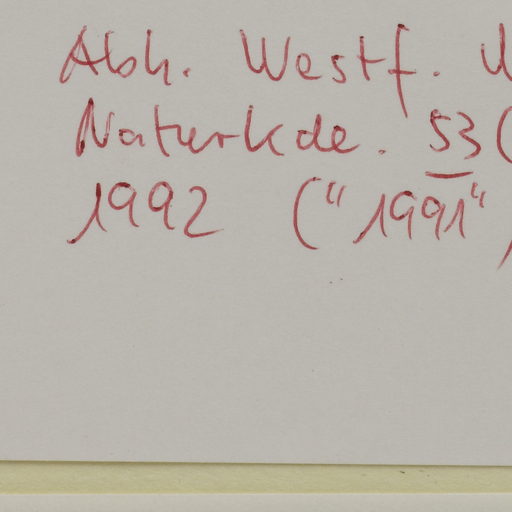 Abh. Westf.
Naturkde. 53 (
1992 ("1991"